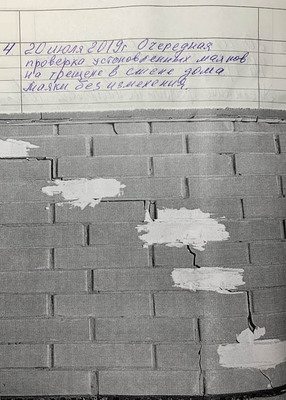 4 20 июля 2019г Очередная
проверка установленных маяков
на трещене в стене дома
Маяки без изменения.